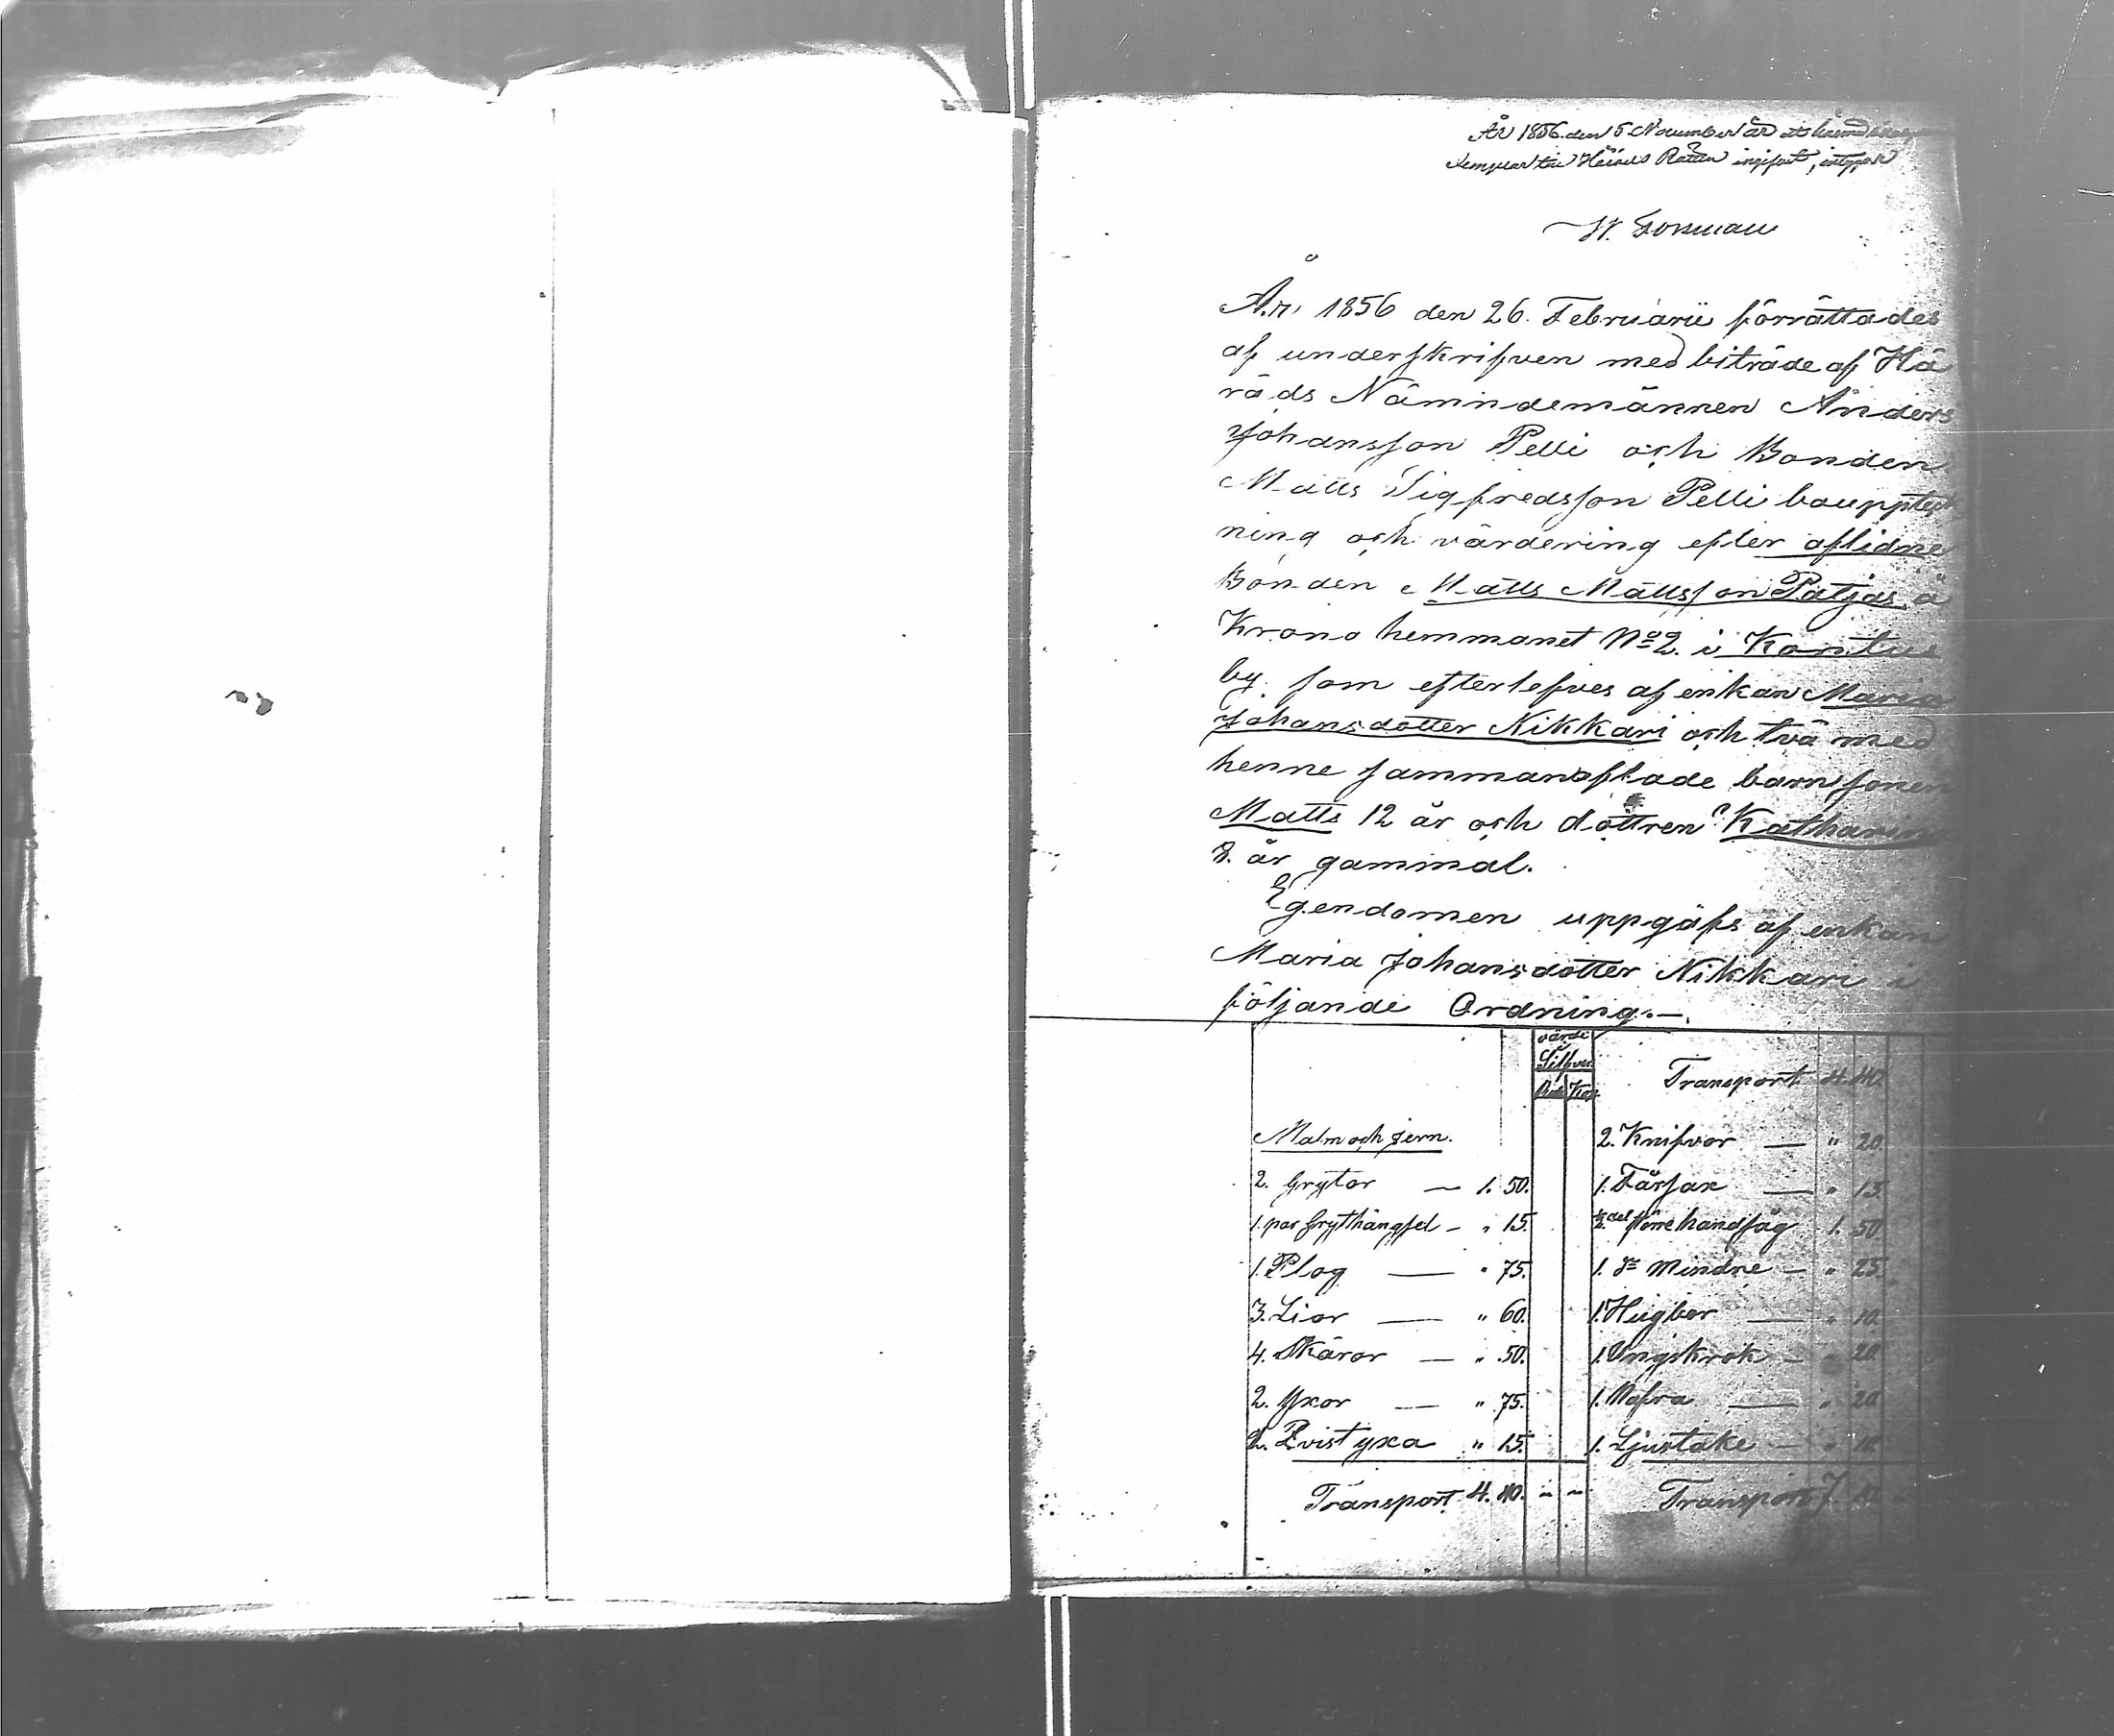 År 1856 den 5 November är ett härmed
exemplar till Härads Rätten ingifvit, intygar
W. Forsman
År 1856 den 26. Februarii förrättades
af underskrifven med biträde af Hä
rads Nämndemännen Anders
Johansson Pelli och Bonden
Matts Sigfredsson Pelli bouppteck
ning och värdering efter aflidne
Bonden Matts Mattsson Patjas å
Krono hemmanet No 2. i Kantus
by. som efterlefves af enkan Maria
Johansdotter Nikkari och två med
henne sammanaflade barn sonen
Matts 12 år och dottren Katharina
8. år gammal.
Egendomen uppgafs af enkan
Maria Johansdotter Nikkari i
följande Ordning.—
värde
Silfver
Rub. Kop.
Malm och jern.
2. Grytor — 1. 50.
1. par Grythängsel — " 15.
1. Plog — " 75.
3. Liar — " 60.
4. Skäror — " 50.
2. Yxor — " 75.
2. Qvistyxa " 15.
Transport 4. 40. " "
Transport 4. 40.
2. Knifvar — " 20.
1. Fårsax — " 15.
½ del större handsåg 1. 50.
1. d:o mindre — " 25.
1. Hugbor — " 10.
1. Ungskrok — " 20.
1. Nafra — " 20.
1. Ljustake — " 10.
Transport 7.